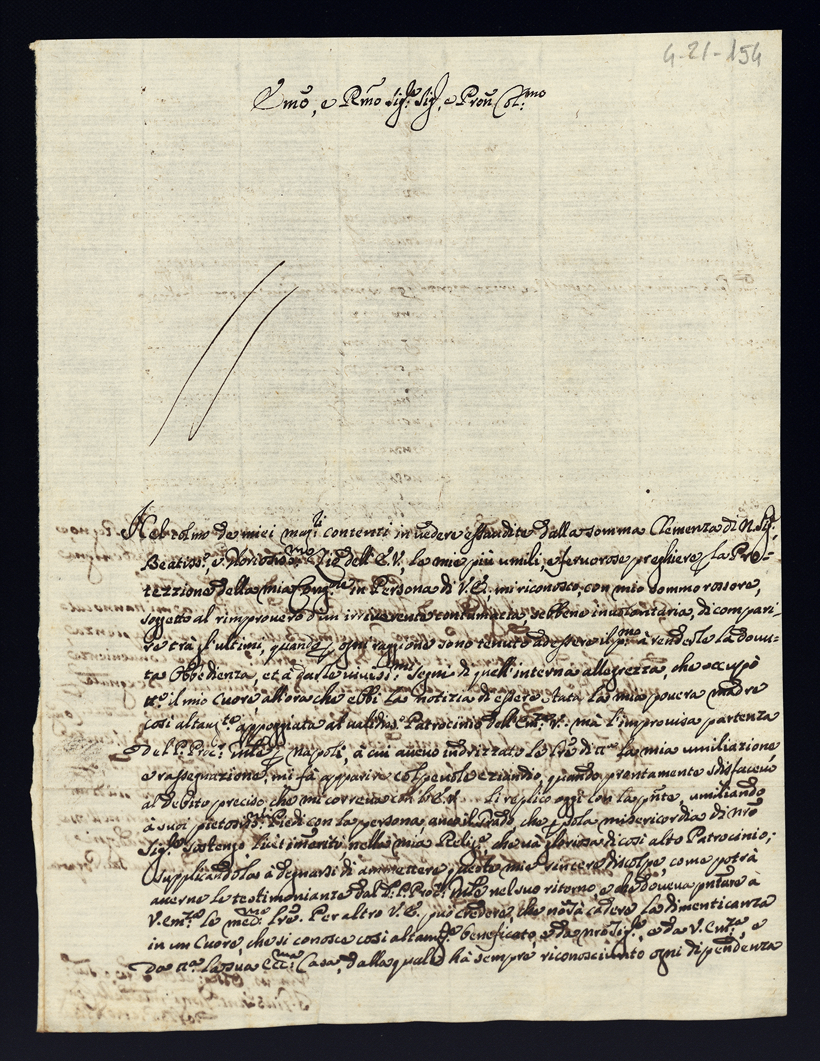 4-21-154
Em̃o, e Rm̃o Sigr. Sig, e Pron Col:mo
Nel colmo de miei magri contenti in vedere essaudite dalla somma Clemenza di N. Sigr.
Beatissº, e Gloriosismo Zio dell'E. V., le mie più umili, e fervorose preghiere p la Pro-
tezzione della mia Congne in Persona di V. E. mi riconosco, con mio sommo rossore,
soggetto al rimprovero d'un irriverente contumacia, sebbene involontaria, di compari-
re trà gl'ultimi, quando p ogni raggione sono tenuto ad essere il pmo à renderle la dovu-
ta Obbedienza, et à darle vivissmi segni di quell'interna allegrezza, che occupò
il mio Cuore allora che ebbi la notizia di essere stata la mia povera madre
così altamte appoggiata al validisº Patrocinio dell'Emza V. mà l'improvisa partenza
del P. Proc. p Napoli, à cui avevo indrizzato le lr̃e di la mia umiliazione
e rassegnazione, mi fà apparire colpevole eziandio, quando prontamente sodisfacevo
al debito preciso che mi correva con l'E. V. li replico oggi con la pñte, umiliando
à suoi pietosissi Piedi con la persona, che p sola misericordia di nr̃o
Sigre sostengo nella mia Religne che và gloriosa di così alto Patrocinio;
supplicandola à degnarsi di ammettere queste mie sincere discolpe, come potrà
averne le testimonianze dal P. Proc. nel suo ritorno, e che doveva pñtare à
V. Emza le medme lr̃e. Per altro V. E. può credere, che nõ sà cadere la dimenticanza
in un Cuore, che si conosce così altamte beneficato, e da nr̃o Sigre, e da V. Emza, e
da la sua Eccma Casa, dalla quale hà sempre riconosciuto ogni dipendenza